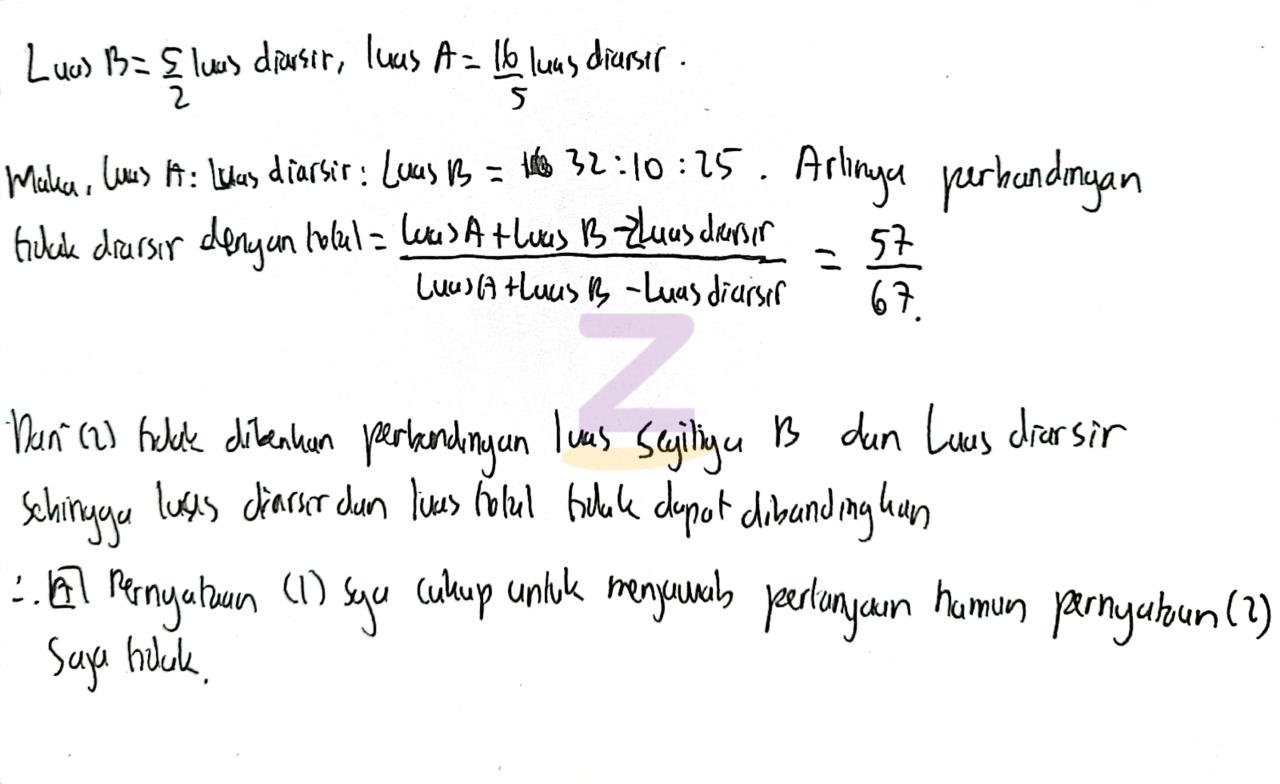 Luas B = 5/2 luas diarsir, luas A = 16/5 luas diarsir.
Maka, luas A : luas diarsir : Luas B = 32 : 10 : 25. Artinya perbandingan
tidak diarsir dengan total = (Luas A + Luas B - 2Luas diarsir)/(Luas A + Luas B - Luas diarsir) = 57/67.
Z
Dari (2) tidak diberikan perbandingan luas segitiga B dan Luas diarsir
Sehingga luas diarsir dan luas total tidak dapat dibandingkan
∴ [A] Pernyataan (1) saja cukup untuk menjawab pertanyaan namun pernyataan (2)
Saja tidak.